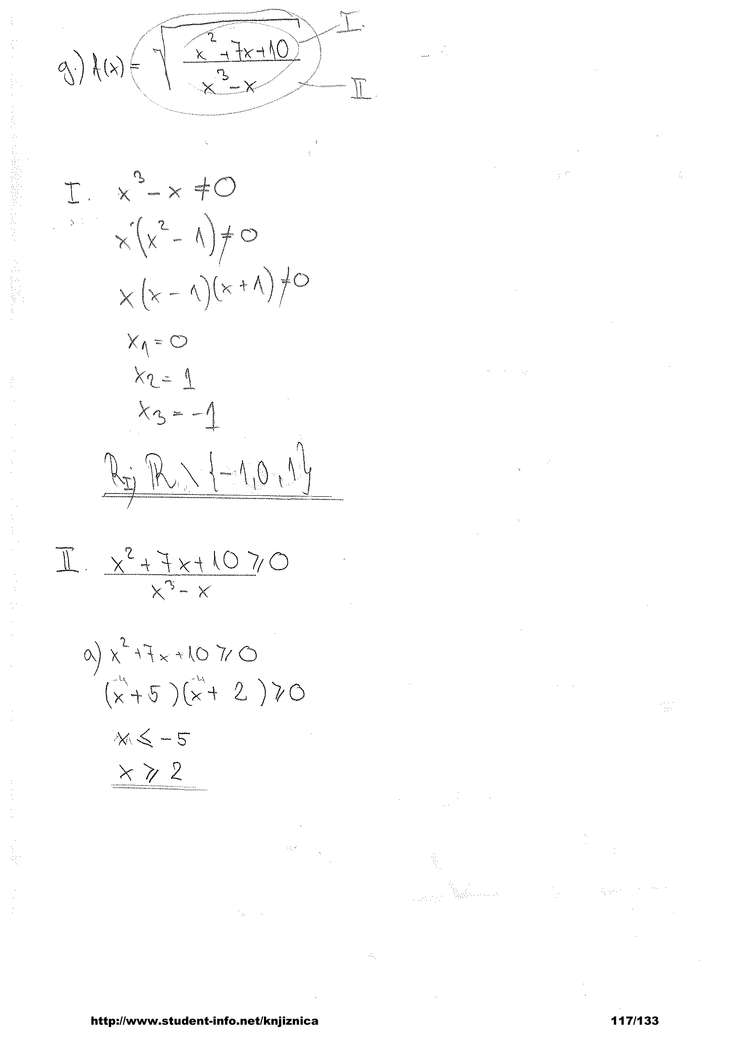 g.) f(x) = √((x² + 7x + 10) / (x³ - x)) I. II
I. x³ - x ≠ 0
x(x² - 1) ≠ 0
x(x - 1)(x + 1) ≠ 0
x₁ = 0
x₂ = 1
x₃ = -1
R_I; ℝ \ {-1, 0, 1}
II. (x² + 7x + 10) / (x³ - x) ≥ 0
a) x² + 7x + 10 ≥ 0
(x + 5)(x + 2) ≥ 0
x ≤ -5
x ≥ 2
http://www.student-info.net/knjiznica 117/133